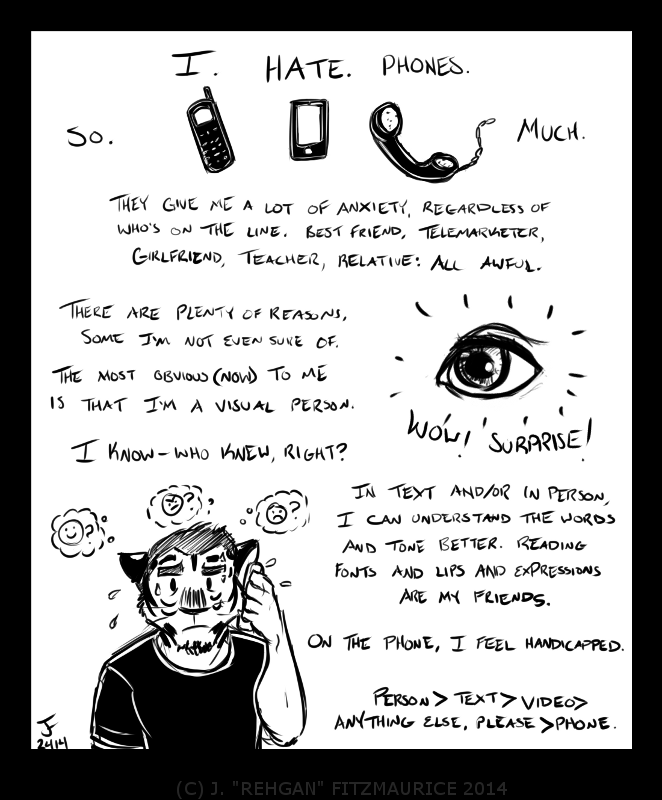 I. HATE. PHONES.
SO. MUCH.
THEY GIVE ME A LOT OF ANXIETY, REGARDLESS OF
WHO'S ON THE LINE. BEST FRIEND, TELEMARKETER,
GIRLFRIEND, TEACHER, RELATIVE: ALL AWFUL.
THERE ARE PLENTY OF REASONS,
SOME I'M NOT EVEN SURE OF.
THE MOST OBVIOUS (NOW) TO ME
IS THAT I'M A VISUAL PERSON.
WOW! SURPRISE!
I KNOW - WHO KNEW, RIGHT?
? ? ?
IN TEXT AND/OR IN PERSON,
I CAN UNDERSTAND THE WORDS
AND TONE BETTER. READING
FONTS AND LIPS AND EXPRESSIONS
ARE MY FRIENDS.
ON THE PHONE, I FEEL HANDICAPPED.
PERSON > TEXT > VIDEO >
ANYTHING ELSE, PLEASE > PHONE.
JF
2414
(C) J. "REHGAN" FITZMAURICE 2014